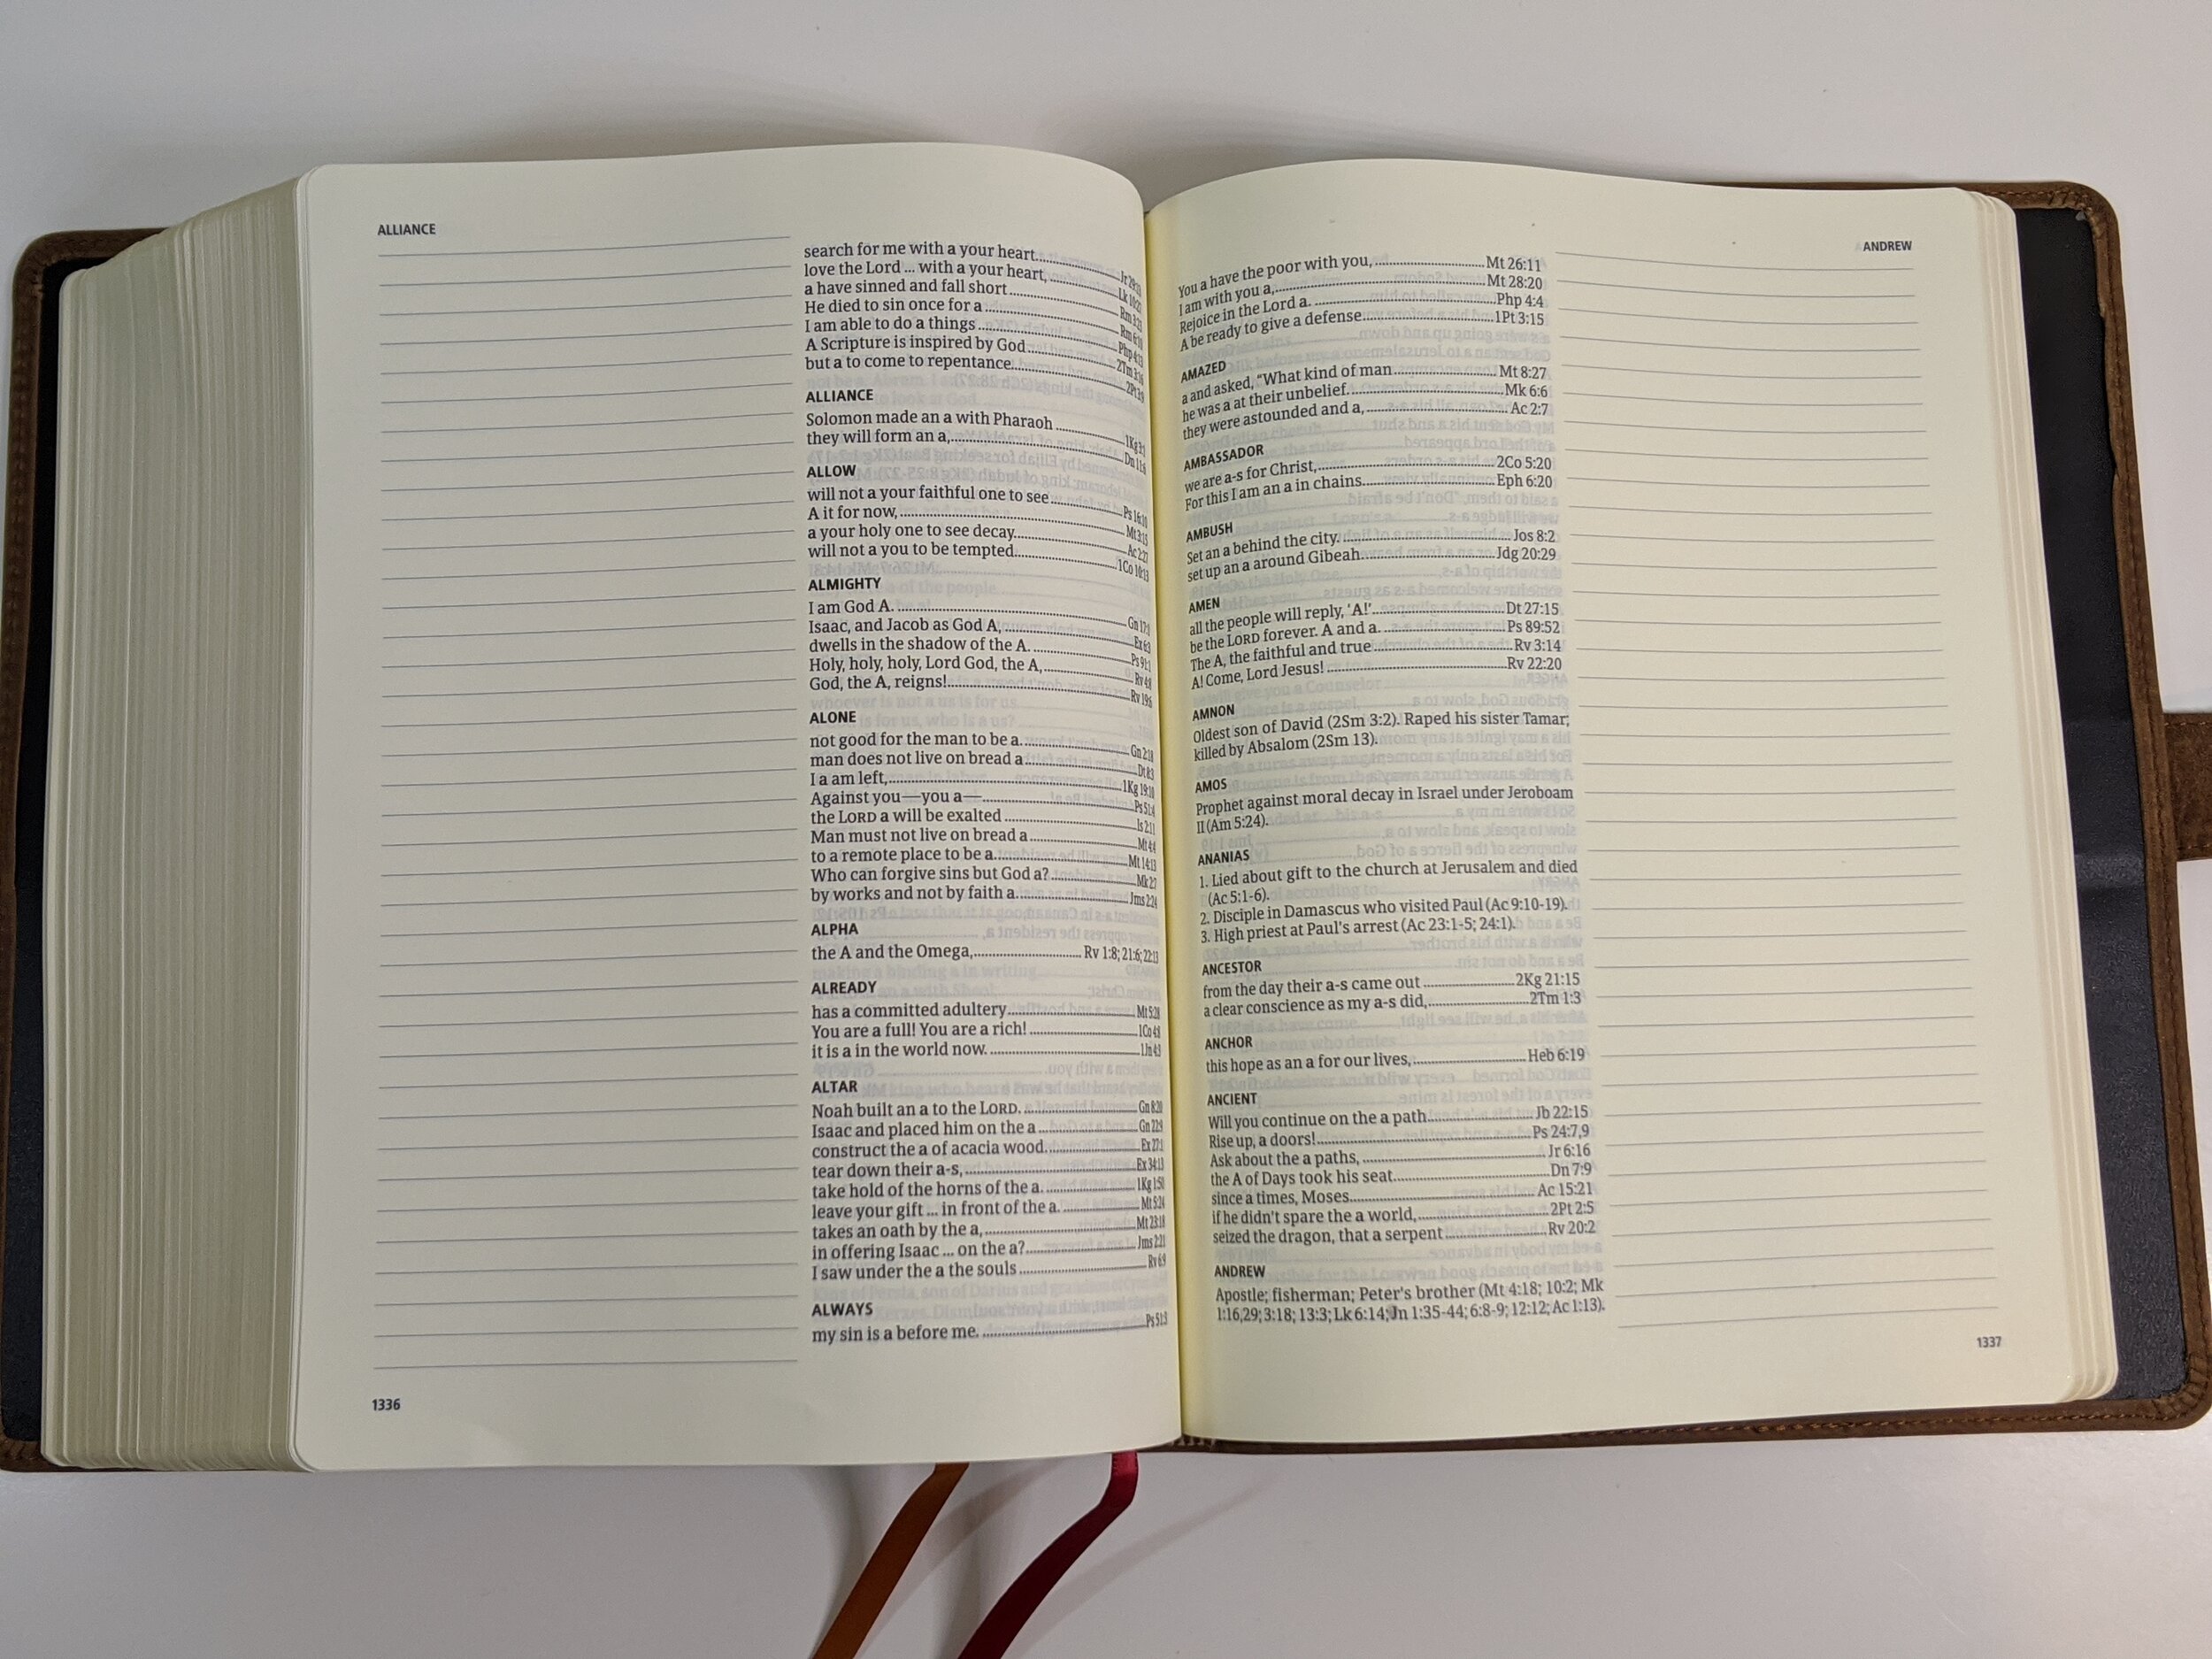 ALLIANCE
search for me with a your heart. Jr 29:13
love the Lord ... with a your heart, Lk 10:27
a have sinned and fall short Rm 3:23
He died to sin once for a Rm 6:10
I am able to do a things Php 4:13
A Scripture is inspired by God 2Tm 3:16
but a to come to repentance. 2Pt 3:9
ALLIANCE
Solomon made an a with Pharaoh 1Kg 3:1
they will form an a, Dn 11:6
ALLOW
will not a your faithful one to see Ps 16:10
A it for now, Mt 3:15
a your holy one to see decay. Ac 2:27
will not a you to be tempted 1Co 10:13
ALMIGHTY
I am God A. Gn 17:1
Isaac, and Jacob as God A, Ex 6:3
dwells in the shadow of the A. Ps 91:1
Holy, holy, holy, Lord God, the A, Rv 4:8
God, the A, reigns! Rv 19:6
ALONE
not good for the man to be a. Gn 2:18
man does not live on bread a Dt 8:3
I a am left, 1Kg 19:10
Against you—you a— Ps 51:4
the LORD a will be exalted Is 2:11
Man must not live on bread a Mt 4:4
to a remote place to be a. Mt 14:13
Who can forgive sins but God a? Mk 2:7
by works and not by faith a. Jms 2:24
ALPHA
the A and the Omega, Rv 1:8; 21:6; 22:13
ALREADY
has a committed adultery Mt 5:28
You are a full! You are a rich! 1Co 4:8
it is a in the world now. 1Jn 4:3
ALTAR
Noah built an a to the LORD. Gn 8:20
Isaac and placed him on the a Gn 22:9
construct the a of acacia wood. Ex 27:1
tear down their a-s, Ex 34:13
take hold of the horns of the a. 1Kg 1:50
leave your gift ... in front of the a. Mt 5:24
takes an oath by the a, Mt 23:18
in offering Isaac ... on the a? Jms 2:21
I saw under the a the souls Rv 6:9
ALWAYS
my sin is a before me. Ps 51:3
1336
ANDREW
You a have the poor with you, Mt 26:11
I am with you a, Mt 28:20
Rejoice in the Lord a. Php 4:4
A be ready to give a defense 1Pt 3:15
AMAZED
a and asked, “What kind of man Mt 8:27
he was a at their unbelief. Mk 6:6
they were astounded and a, Ac 2:7
AMBASSADOR
we are a-s for Christ, 2Co 5:20
For this I am an a in chains Eph 6:20
AMBUSH
Set an a behind the city. Jos 8:2
set up an a around Gibeah. Jdg 20:29
AMEN
all the people will reply, ‘A!’ Dt 27:15
be the LORD forever. A and a. Ps 89:52
The A, the faithful and true Rv 3:14
A! Come, Lord Jesus! Rv 22:20
AMNON
Oldest son of David (2Sm 3:2). Raped his sister Tamar;
killed by Absalom (2Sm 13).
AMOS
Prophet against moral decay in Israel under Jeroboam
II (Am 5:24).
ANANIAS
1. Lied about gift to the church at Jerusalem and died
(Ac 5:1-6).
2. Disciple in Damascus who visited Paul (Ac 9:10-19).
3. High priest at Paul's arrest (Ac 23:1-5; 24:1).
ANCESTOR
from the day their a-s came out 2Kg 21:15
a clear conscience as my a-s did, 2Tm 1:3
ANCHOR
this hope as an a for our lives, Heb 6:19
ANCIENT
Will you continue on the a path Jb 22:15
Rise up, a doors! Ps 24:7,9
Ask about the a paths, Jr 6:16
the A of Days took his seat. Dn 7:9
since a times, Moses Ac 15:21
if he didn't spare the a world, 2Pt 2:5
seized the dragon, that a serpent Rv 20:2
ANDREW
Apostle; fisherman; Peter's brother (Mt 4:18; 10:2; Mk
1:16,29; 3:18; 13:3; Lk 6:14; Jn 1:35-44; 6:8-9; 12:12; Ac 1:13).
1337